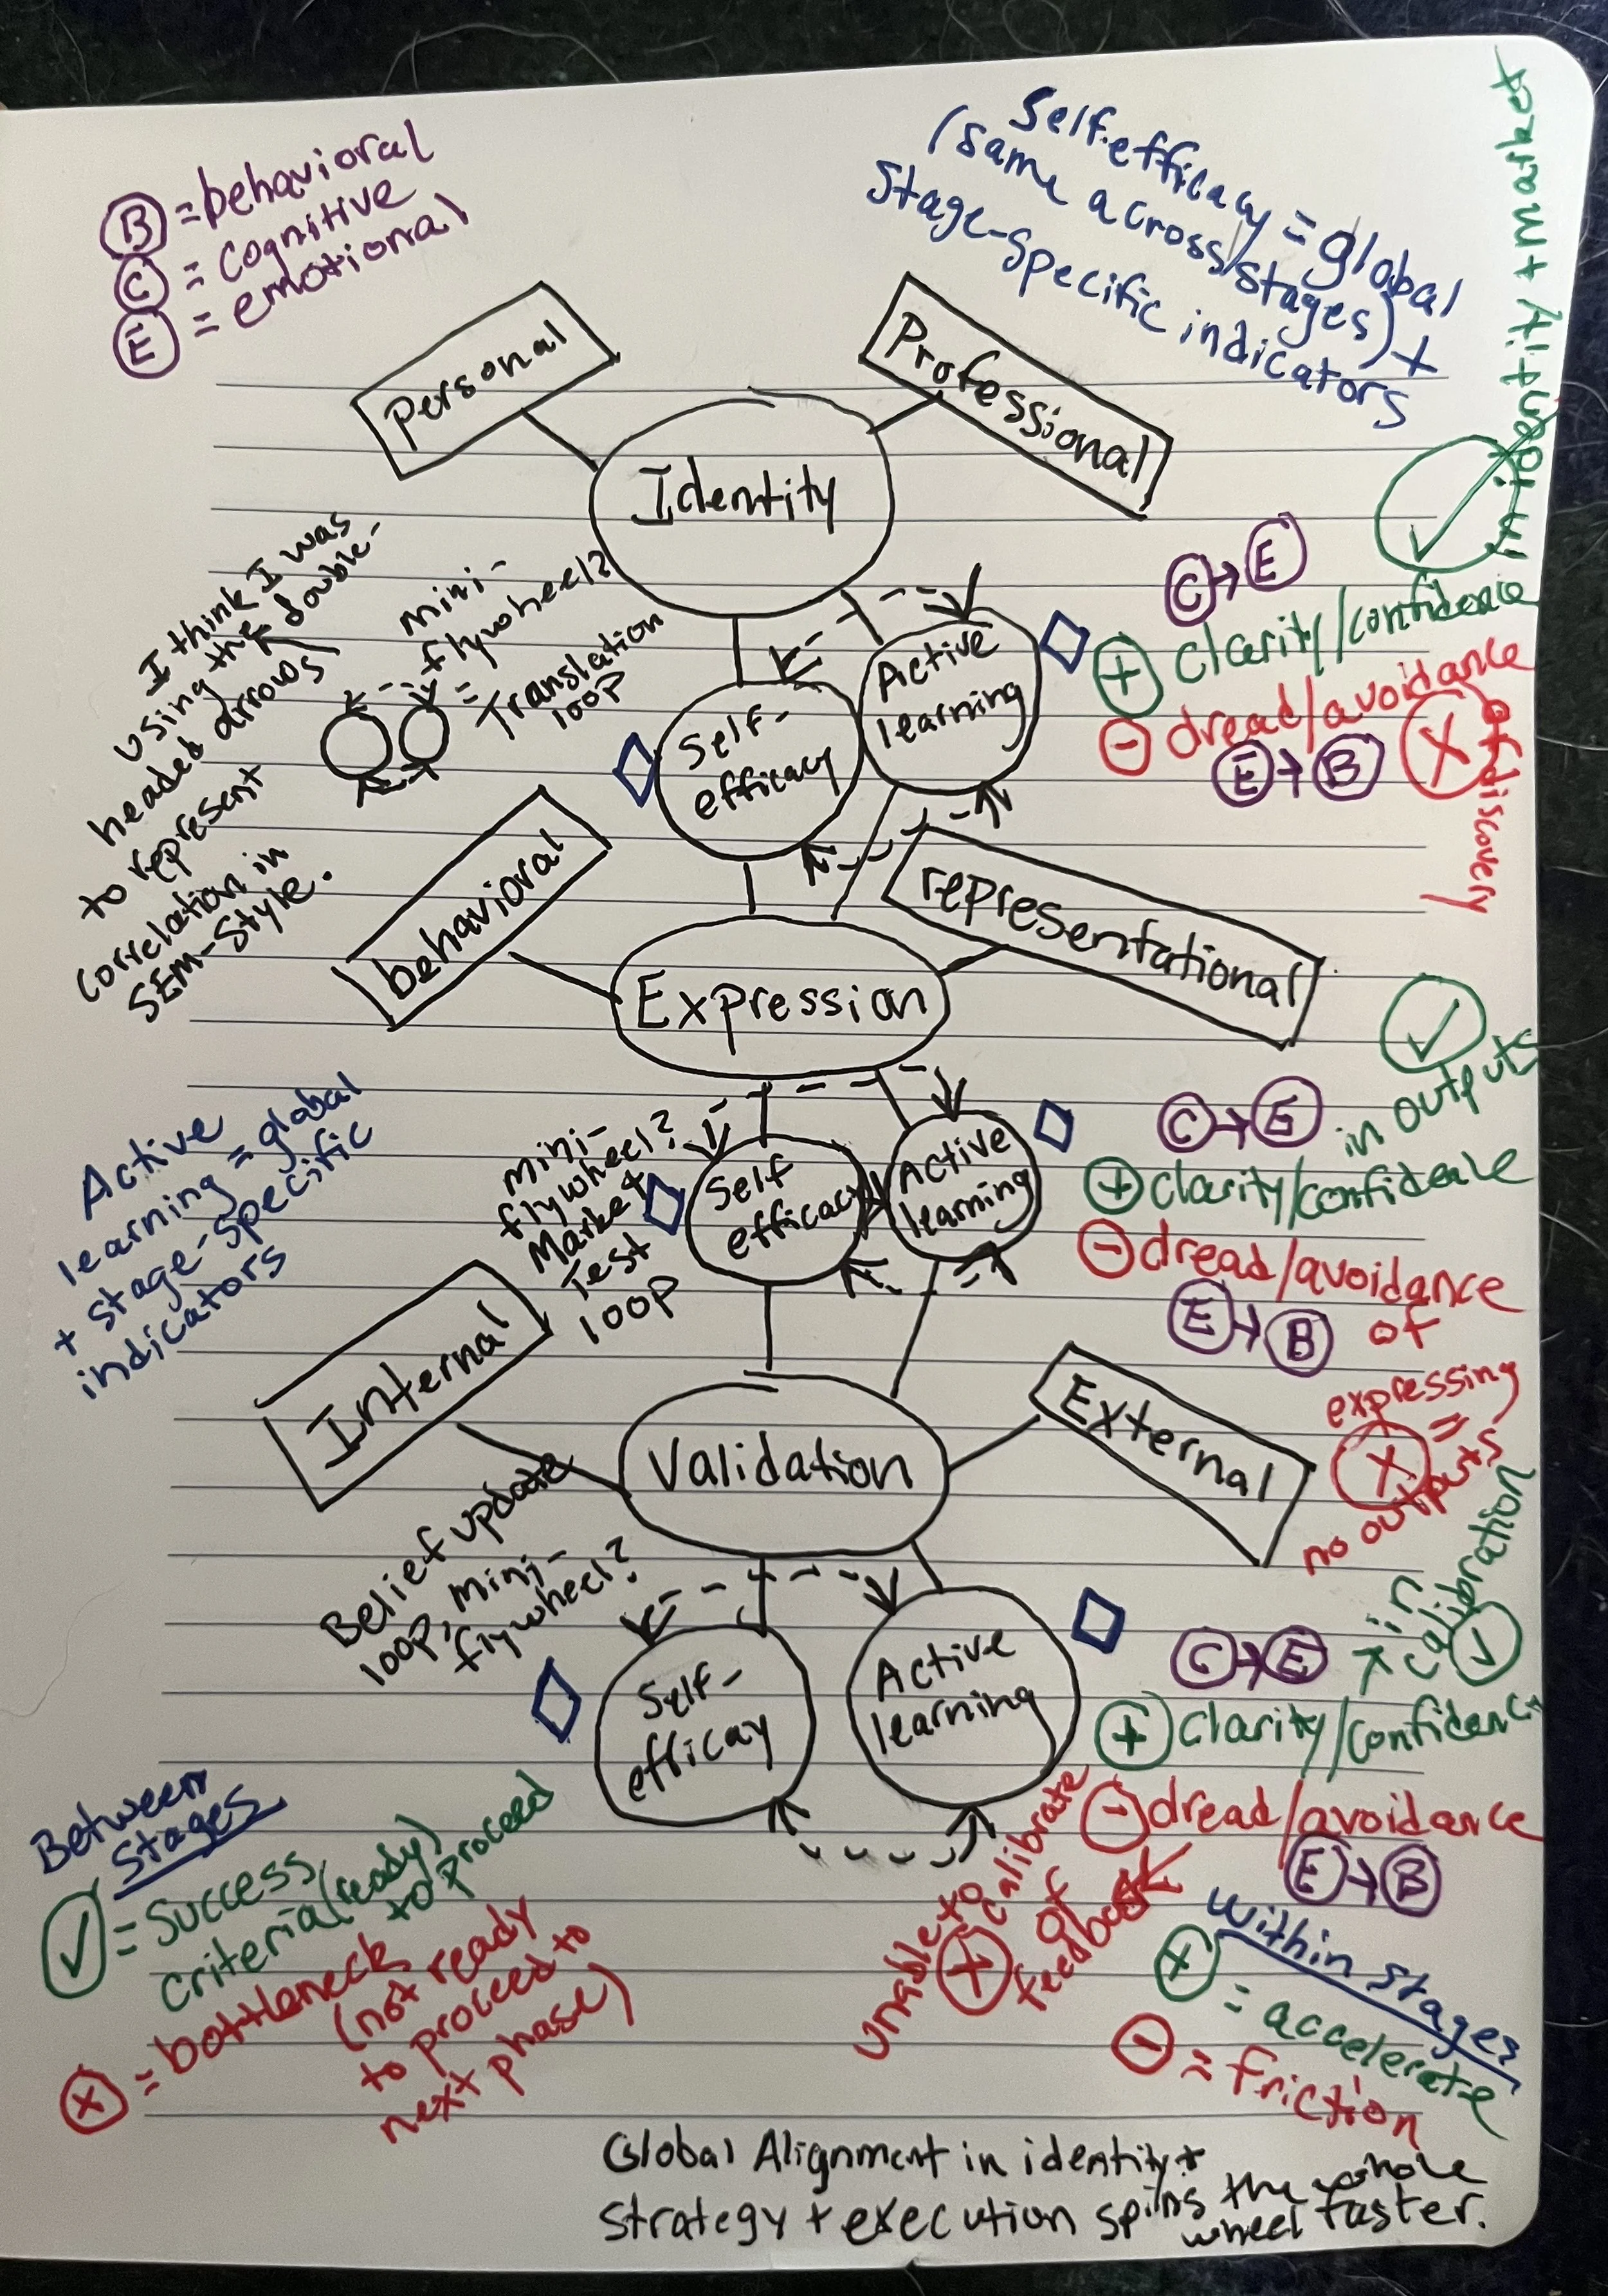 B = behavioral
C = cognitive
E = emotional
Self-efficacy = global
(same across stages) +
stage-specific indicators
Personal
Professional
Identity
I think I was
using the double-
headed arrows
to represent
correlation in
SEM-style.
mini-
flywheel?
= Translation
loop
Self-
efficacy
Active
learning
C → E
✓
in identity + market
+ clarity/confidence
- dread/avoidance
E → B
X
of discovery
behavioral
representational
Expression
Active
learning = global
+ stage-specific
indicators
mini-
flywheel?
Market
Test
loop
Self
efficacy
Active
learning
✓
in outputs
C → E
+ clarity/confidence
- dread/avoidance
E → B
of
expressing
=
X
no outputs
Internal
External
Validation
Belief update
loop, mini-
flywheel?
Self-
efficay
Active
learning
C → E
in
calibration
✓
+ clarity/confidence
- dread/avoidance
E → B
of
feedback
X
unable to
calibrate
Between
stages
✓ = success
criteria (ready)
to proceed
X = bottleneck
(not ready
to proceed to
next phase)
Within stages
+ = accelerate
- = friction
Global Alignment in identity +
strategy + execution spins the whole
wheel faster.